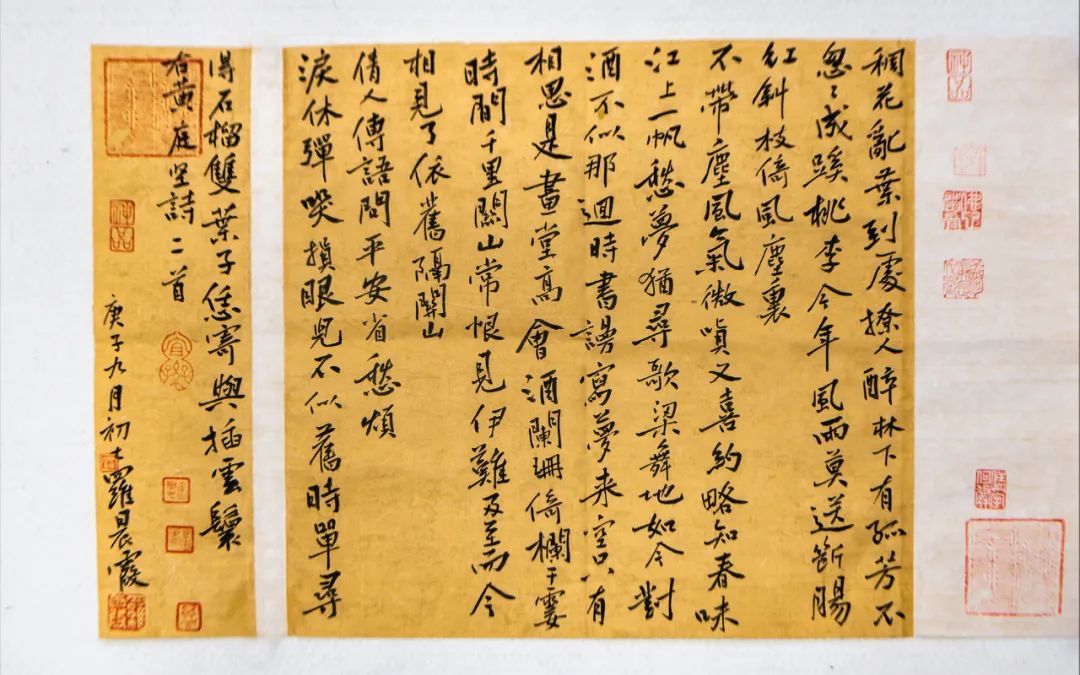 稠花亂葉到處撩人醉林下有孤芳不
忽々成蹊桃李今年風雨莫送斷腸
紅斜枝倚風塵裏
不帶塵風氣微嗔又喜約略知春味
江上一帆愁夢猶尋歌梁舞地如今對
酒不似那迴時書謾寫夢来空只有
相思是畫堂高會酒闌珊倚欄干霎
時間千里關山常恨見伊難及至而今
相見了依舊隔關山
倩人傳語問平安省愁煩
淚休彈哭損眼兒不似舊時單尋
得石榴雙葉子恁寄與插雲鬟
右黃庭坚詩二首
庚子九月初七羅晨霞